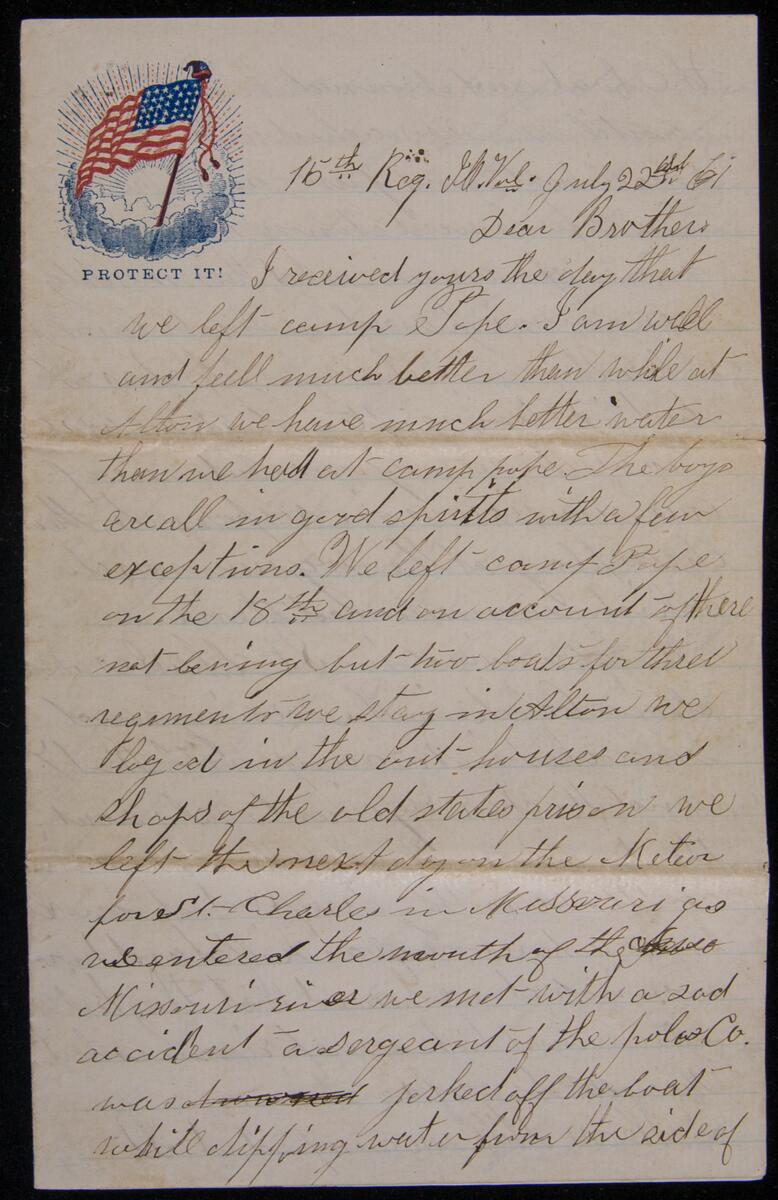 PROTECT IT!
15th Reg. Ill. Vol. July 22nd 61
Dear Brother
I received yours the day that
we left camp Pope. I am well
and feell much better than while at
Alton we have much better water
than we had at camp pope. The boys
are all in good spirits with a few
exceptions. We left camp Pope
on the 18th and on account of there
not beining but two boats for three
regiments we stay in Alton we
loged in the out houses and
shops of the old states prison we
left the next day on the Meteor
for St. Charles in Missouri as
we entered the mouth of the
Missouri river we met with a sad
accident a sergeant of the polo Co.
was drowned jerked off the boat
while dipping water from the side of